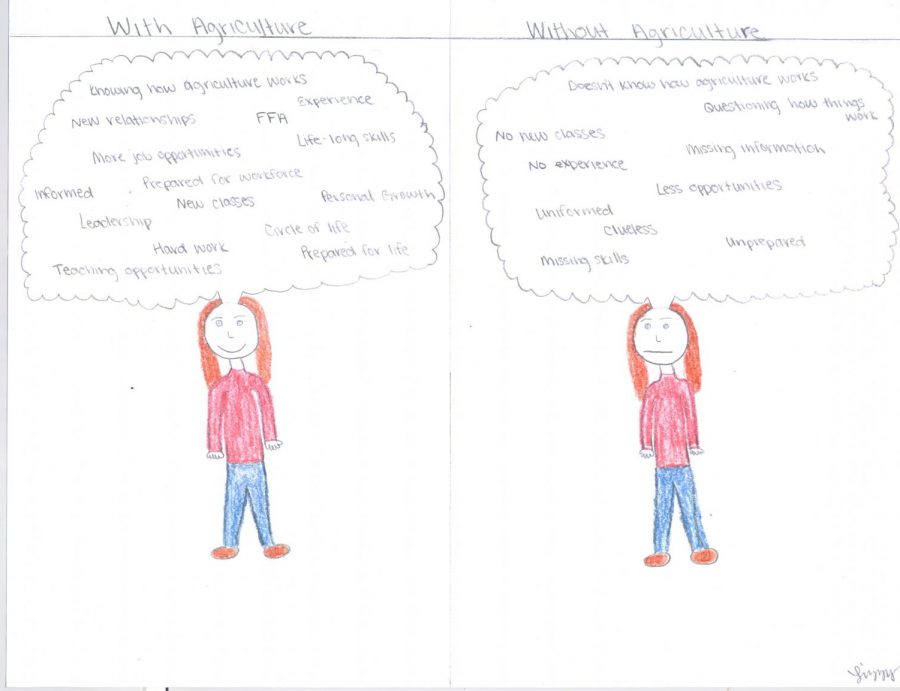 With Agriculture
Knowing how agriculture works
Experience
New relationships
FFA
Life-long skills
More job opportunities
Prepared for workforce
Informed
Personal Growth
New classes
Leadership
Circle of life
Hard work
Prepared for life
Teaching opportunities
Without Agriculture
Doesn't know how agriculture works
Questioning how things
work
No new classes
Missing information
No experience
Less opportunities
Uniformed
Clueless
Unprepared
Missing skills